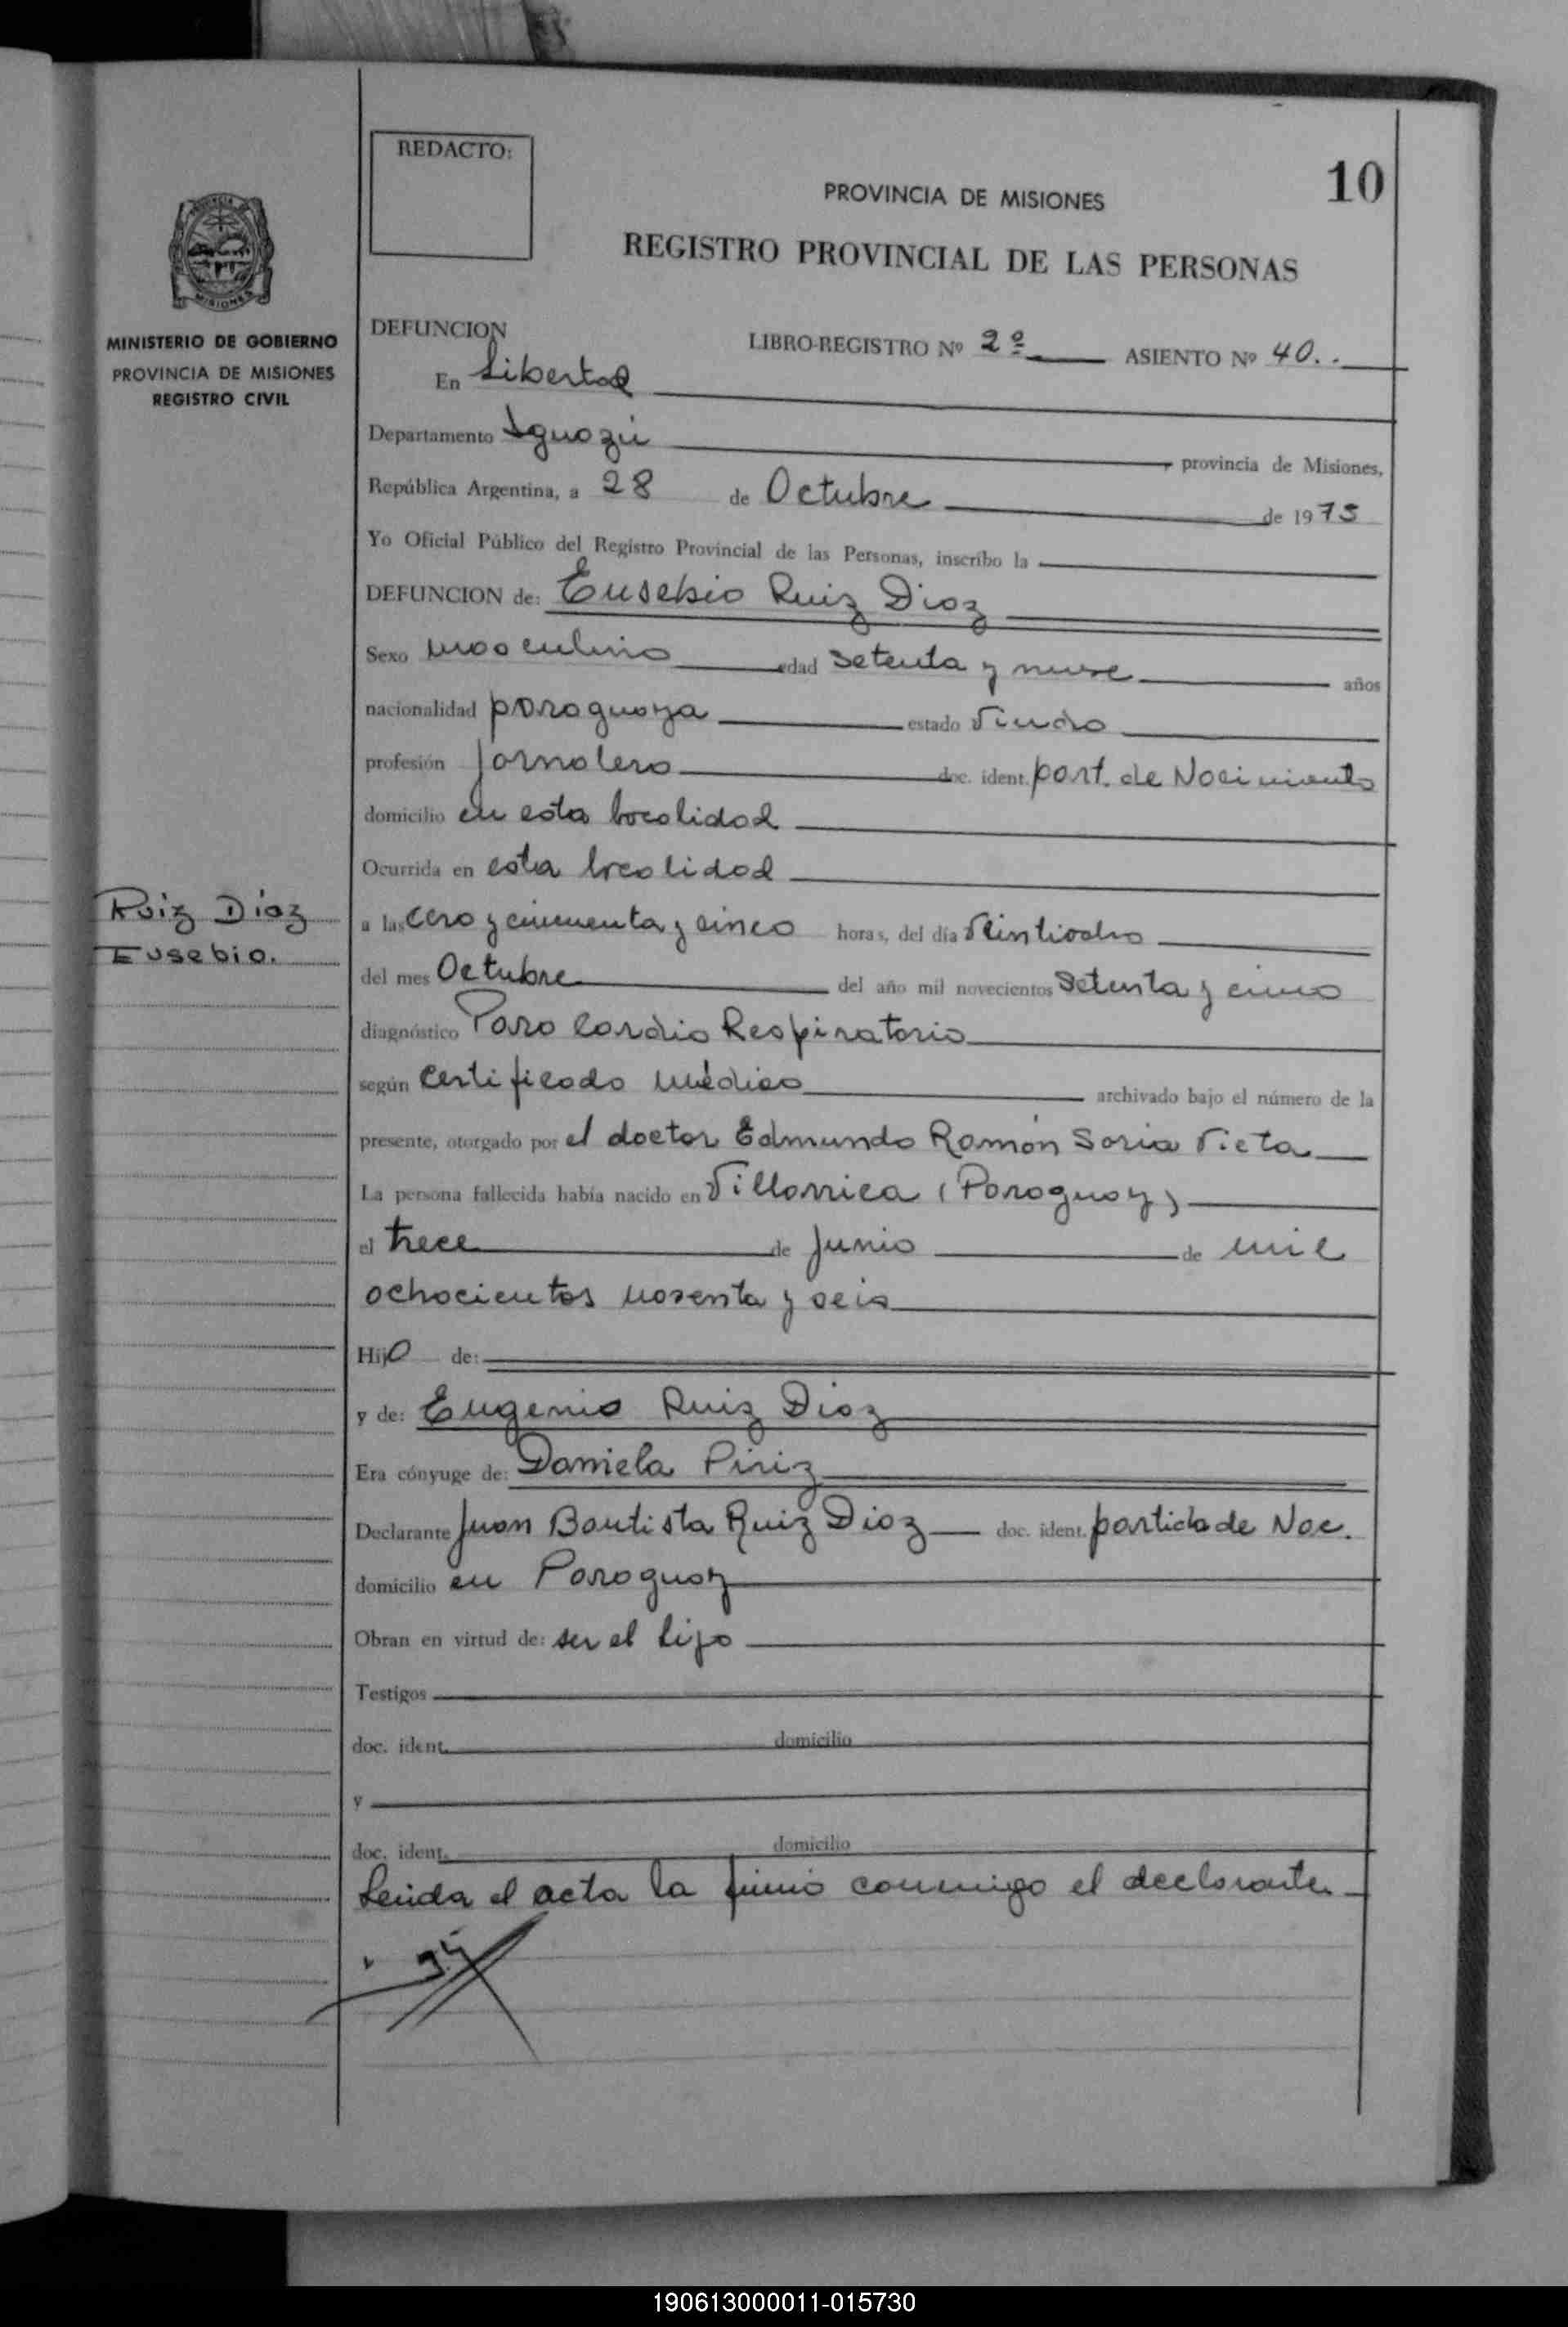 REDACTO:
10
PROVINCIA DE MISIONES
REGISTRO PROVINCIAL DE LAS PERSONAS
PROVINCIA DE
MISIONES
MINISTERIO DE GOBIERNO
PROVINCIA DE MISIONES
REGISTRO CIVIL
DEFUNCION LIBRO-REGISTRO Nº 2º ASIENTO Nº 40..
En Libertad
Departamento Iguazú, provincia de Misiones,
República Argentina, a 28 de Octubre de 1975
Yo Oficial Público del Registro Provincial de las Personas, inscribo la
DEFUNCION de: Eusebio Ruiz Diaz
Sexo masculino edad setenta y nueve años
nacionalidad paraguaya estado viudo
profesión jornalero doc. ident. part. de Nacimiento
domicilio en esta localidad
Ocurrida en esta localidad
Ruiz Díaz
Eusebio.
a las cero y cincuenta y cinco horas, del día veintiocho
del mes Octubre del año mil novecientos setenta y cinco
diagnóstico Paro Cardio Respiratorio
según certificado médico archivado bajo el número de la
presente, otorgado por el doctor Edmundo Ramón Soria Vieta
La persona fallecida había nacido en Villarrica (Paraguay)
el trece de junio de mil
ochocientos noventa y seis
Hijo de:
y de: Eugenio Ruiz Diaz
Era cónyuge de: Daniela Piriz
Declarante Juan Bautista Ruiz Diaz doc. ident. partida de Nac.
domicilio en Paraguay
Obran en virtud de: ser el hijo
Testigos
doc. ident. domicilio
y
doc. ident. domicilio
Leida el acta la firmó conmigo el declarante
190613000011-015730